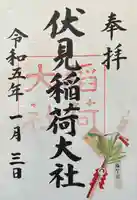 奉拝
伏見稲荷大社
令和五年一月三日